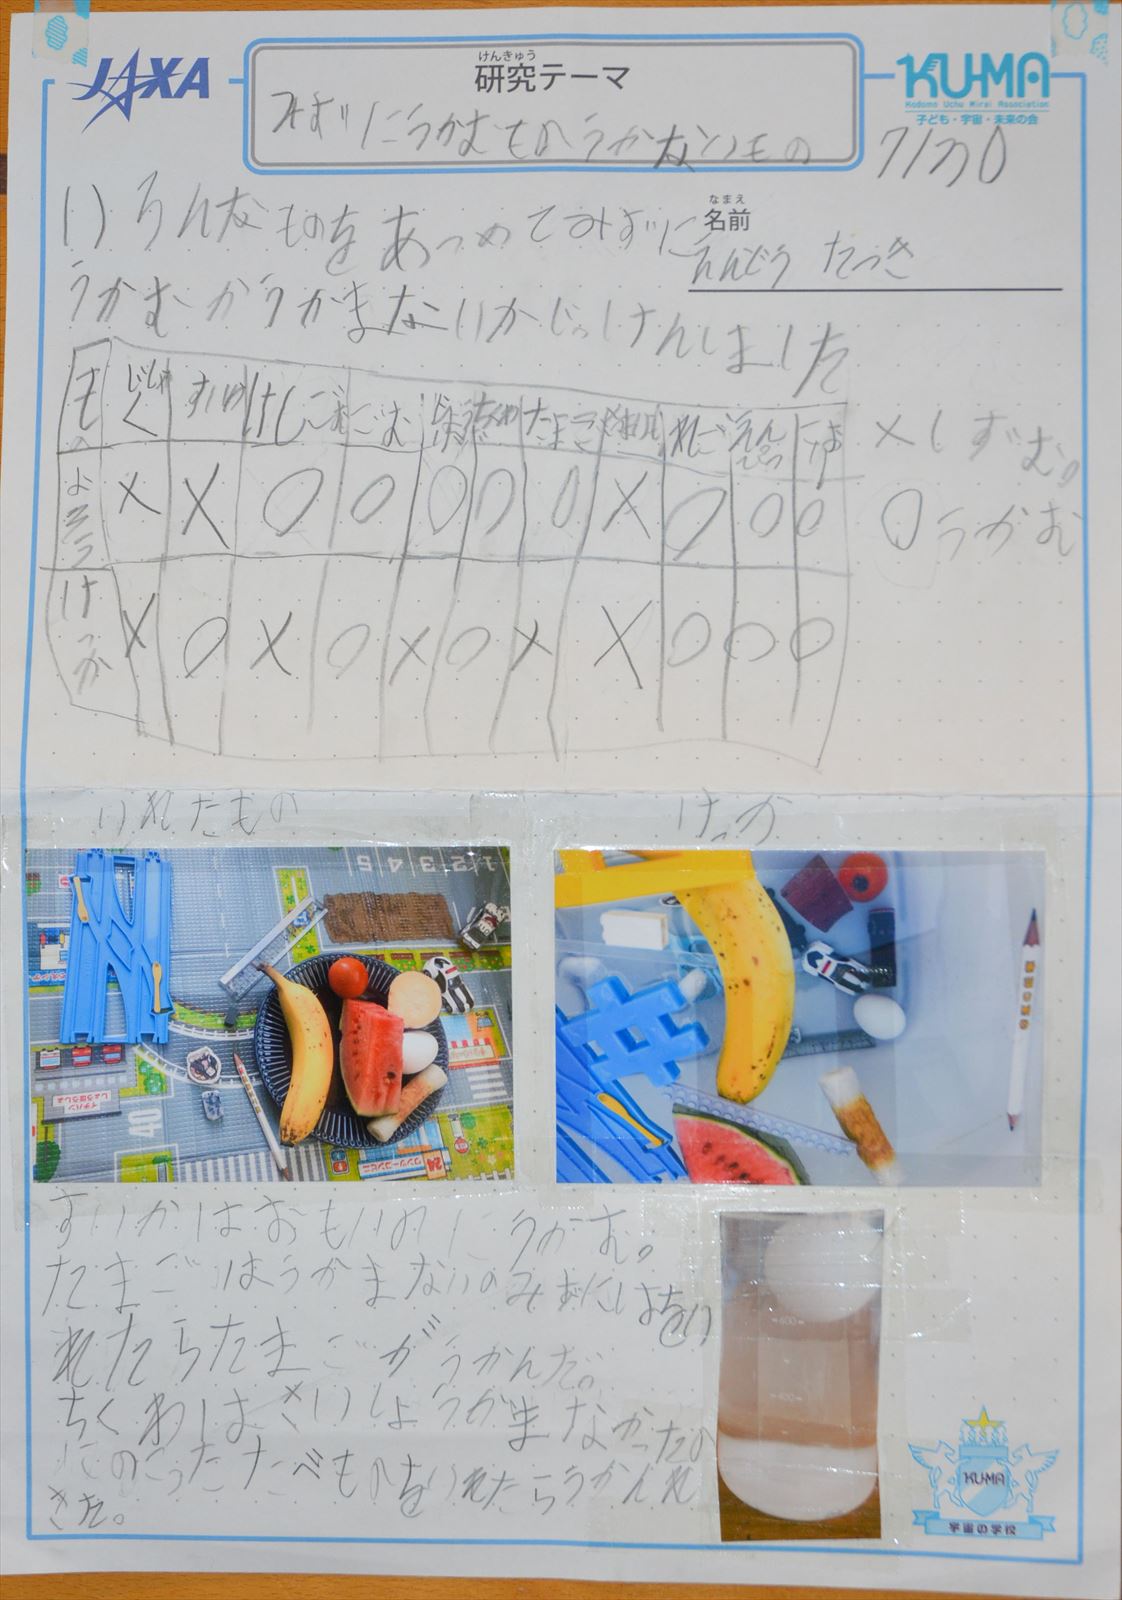 JAXA
けんきゅう
研究テーマ
KU-MA
Kodomo Uchu Mirai Association
子ども・宇宙・未来の会
みずにうかむものうかないもの
7/30
いろんなものをあつめてみずに
なまえ
名前
えんどう たつき
うかむかうかまないかじっけんしました
もの じしゃく けしごむ ごむ ちくわ たまご りんご えんぴつ
×しずむ。
よそう × × 〇 〇 〇 〇 〇 × 〇 〇 〇
〇うかむ
けっか × 〇 × 〇 × 〇 × × 〇 〇 〇
いれたもの
けっか
1 2 3 4 5
イチバン
しょうぼうしょ
40
24
ワンツーコンビニ
すいかはおもいのにうかむ。
たまごはうかまないのみずにしおをい
れたらたまごがうかんだ。
ちくわはさいしょうかまなかったの
にのこったたべものをいれたらうかんれ
きた。
600
400
KU-MA
宇宙の学校